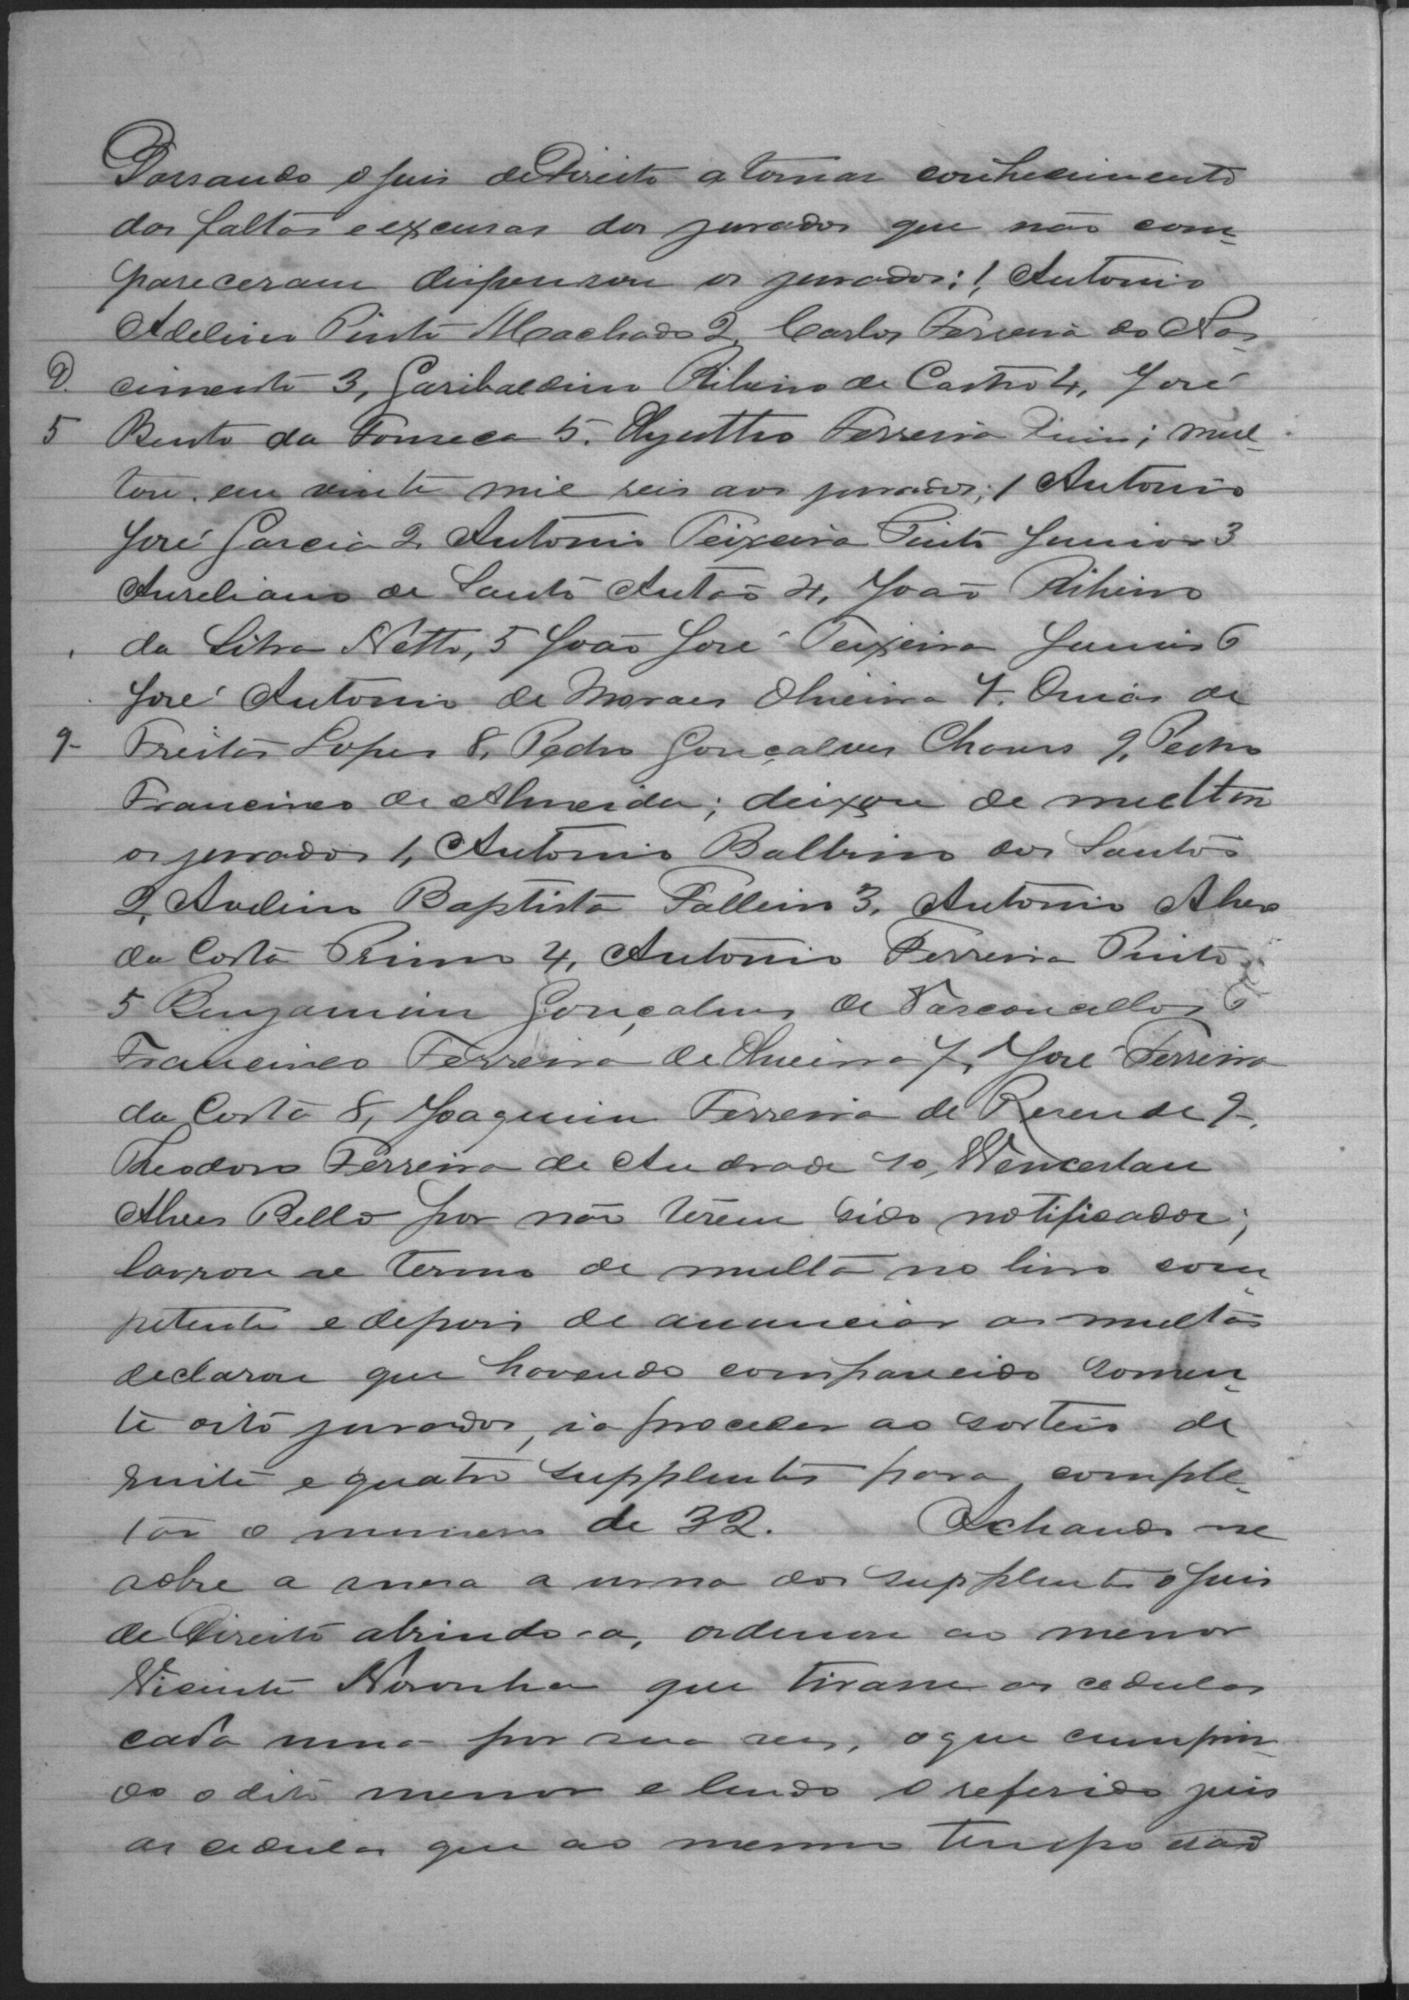 Passando o juis de Direito a tomar conhecimento
das faltas e excusas dos jurados que não com-
pareceram dispensou os jurados: 1, Antonio
Adelino Pinto Machado 2, Carlos Ferreira do Nas-
D. cimento 3, Garibaldino Ribeiro de Castro 4, José
5 Bento da Fonseca 5. Ferreira; mul-
tou em vinte mil reis aos jurados; 1 Antonio
José Garcia 2 Antonio Teixeira Pinto Junior 3
Aureliano de Santo Antão 4, João Ribeiro
da Silva Netto, 5 João José Teixeira Junior 6
José Antonio de Moraes Oliveira 7. Onias de
9- Freitas Lopes 8, Pedro Gonçalves Chaves 9, Pedro
Francisco de Almeida; deixou de multtar
os jurados 1, Antonio Balbino dos Santos
2, Avelino Baptista Falleiro 3, Antonio Alves
da Costa Primo 4, Antonio Ferreira Pinto
5 Benjamim Gonçalves de Vasconcellos 6
Francisco Ferreira de Oliveira 7, José Ferreira
da Costa 8, Joaquim Ferreira de Resende 9-,
Theodoro Ferreira de Andrade 10, Wenceslau
Alves Bello por não terem sido notificados;
lavrou se termo de multa no livro com-
petente e depois de anunciar as multas
declarou que havendo comparecido somen-
te oito jurados, ia proceder ao sorteio de
vinte e quatro supplentes para comple-
tar o numero de 32. Achando se
sobre a mesa a urna dos supplentes o juis
de Direito abrindo-a, ordenou ao menor
Vicente Noronha que tirasse as cedulas
cada uma por sua vez, o que cumprin-
do o dito menor e lendo o referido juis
as cedulas que ao mesmo tempo são